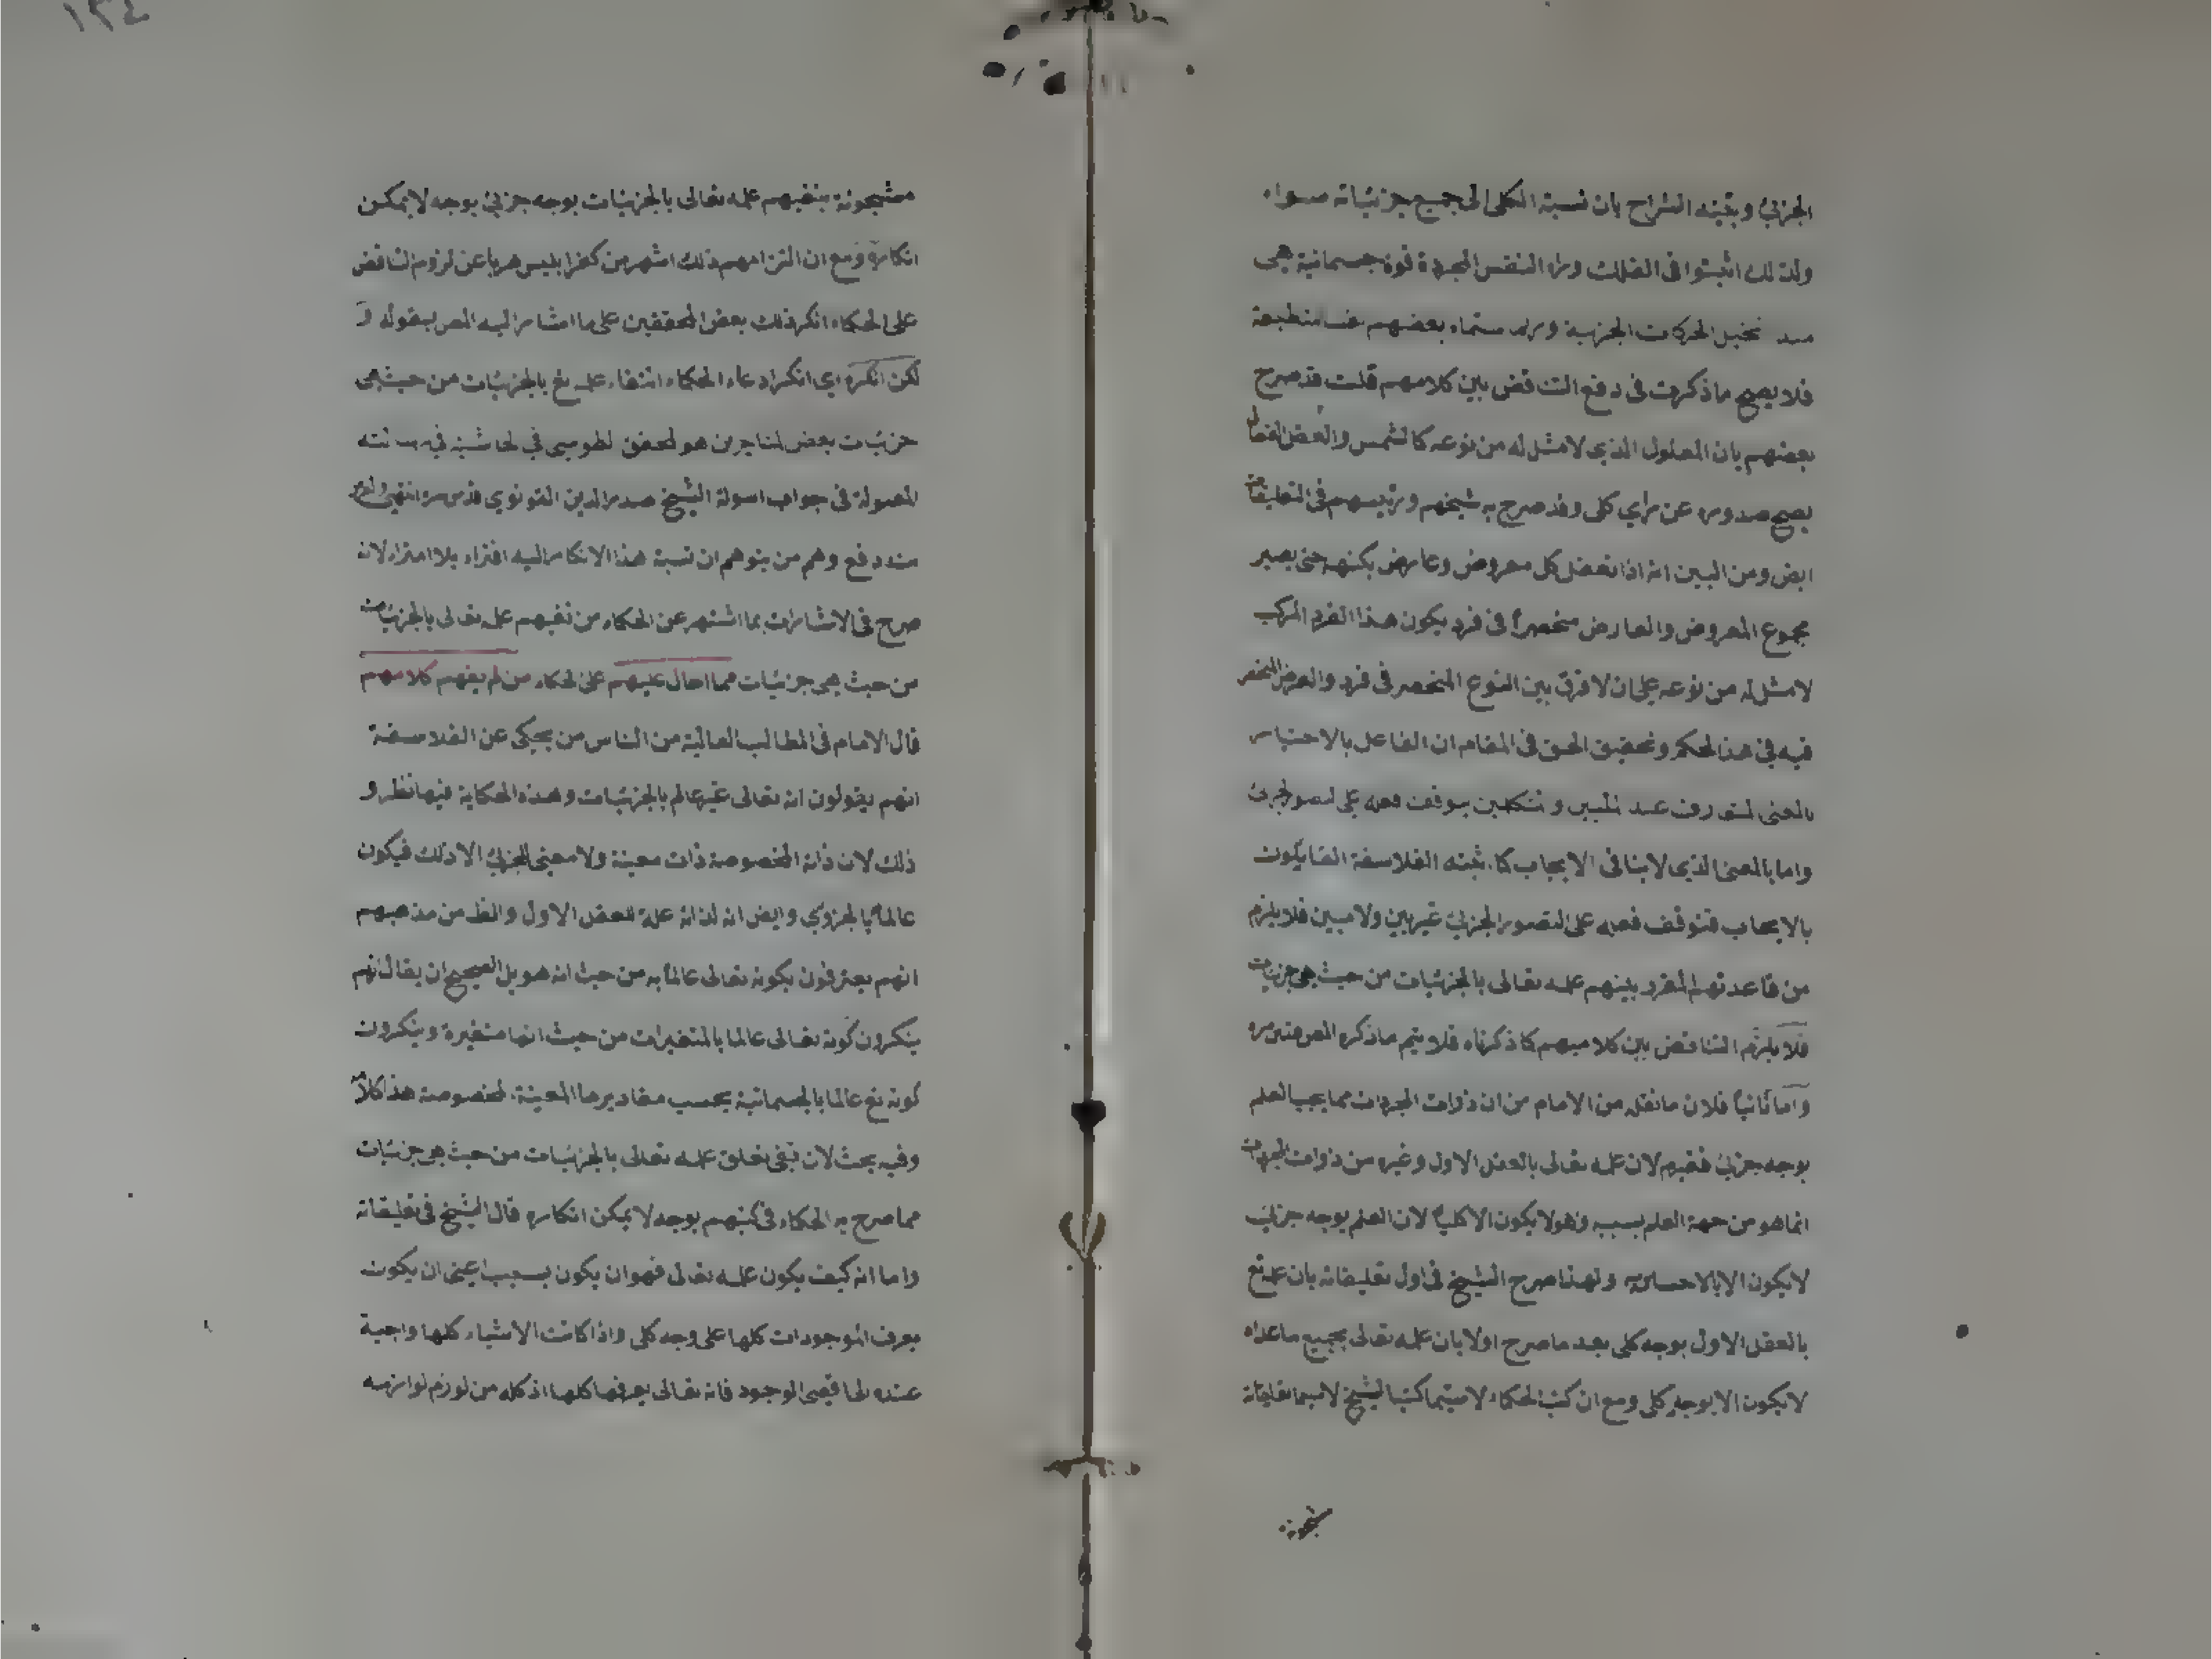 الجزئي وبينه الشراح بان نسبة الكلى الى جميع جزئياته سواء
ولذلك اثبتوا فى الفلك وراء النفس المجردة قوة جسمانية هى
مبدء تخيل الحركات الجزئية وربما سماه بعضهم نفسا منطبعة
فلا يصح ما ذكرت فى دفع التناقض بين كلامهم قلت قد صرح
بعضهم بان المعلول الذى لا مثل له من نوعه كالشمس والعقل الفعال
يصح صدوره عن راي كلى وقد صرح به شيخهم ورئيسهم فى التعليقات
ايض ومن البين انه اذا تعقل كل معروض وعارض بكنهه حتى يصير
مجموع المعروض والعارض منحصرا فى فرد يكون هذا الفرد المركب
لا مثل له من نوعه على ان لا فرق بين النوع المنحصر فى فرد والعرض المنحصر
فيه فى هذا الحكم وتحقيق الحق فى المقام ان الفاعل بالاختيار
بالمعنى المتعارف عند المليين والمتكلمين يتوقف فعله على التصور الجزئى
واما بالمعنى الذى لا ينافى الايجاب كما يثبته الفلاسفة القايلون
بالايجاب فتوقف فعله على التصور الجزئى غير بين ولا مبين فلا يلزم
من قاعدتهم المقرر بينهم علمه تعالى بالجزئيات من حيث هى جزئيات
فلا يلزم التناقض بين كلاميهم كما ذكرناه فلا يتم ما ذكره المص
واما ثانيا فلان ما نقله من الامام من ان ذوات المجردات مما يجب العلم
بوجه جزئى فقيم لان علمه تعالى بالعقل الاول وغيره من ذوات المجردات
انما هو من جهة العلم بسببه وهو لا يكون الا كليا لان العلم بوجه جزئى
لا يكون الا بالاحساس به ولهذا صرح الشيخ فى اول تعليقاته بان علمه تع
بالعقل الاول بوجه كلى بعد ما صرح اولا بان علمه تعالى بجميع ما عداه
لا يكون الا بوجه كلى ومع ان كتب الحكماء لا سيما كتب الشيخ لا سيما تعليقاته
مشحونة
١٣٤
مشحونة بنفيهم علمه تعالى بالجزئيات بوجه جزئى بوجه لا يمكن
انكاره ومع ان التزامهم ذلك اشهر من كفر ابليس هربا عن لزوم التناقض
على الحكماء انكر ذلك بعض المحققين على ما اشار اليه المص بقوله و
لكن انكره اى انكر ادعاء الحكماء انتفاء علمه تع بالجزئيات من حيث هى
جزئيات بعض المتاخرين هو المحقق الطوسي في الحاشية في رسالته
المعمولة فى جواب اسولة الشيخ صدر الدين القونوي قدس سره انتهى
منه دفع وهم من يتوهم ان نسبة هذا الانكار اليه افتراء بلا امتراء لانه
صرح فى الاشارات بما اشتهر عن الحكماء من نفيهم علمه تعالى بالجزئيات
من حيث هى جزئيات مما احال عليهم على الحكماء من لم يفهم كلامهم
قال الامام فى المطالب العالية من الناس من يحكى عن الفلاسفة
انهم يقولون انه تعالى غير عالم بالجزئيات وهذه الحكاية فيها نظر و
ذلك لان ذاته المخصوصة ذات معينة ولا معنى للجزئى الا ذلك فيكون
عالما بالجزئي وايض انه لذاته علة للعقل الاول والظ من مذهبهم
انهم يعترفون بكونه تعالى عالما به من حيث انه هو بل الصحيح ان يقال انهم
ينكرون كونه تعالى عالما بالمتغيرات من حيث انها متغيرة وينكرون
كونه تع عالما بالجسمانية بحسب مقاديرها المعينة المخصوصة هذا كلامه
وفيه بحث لان نفى تعلق علمه تعالى بالجزئيات من حيث هى جزئيات
مما صرح به الحكماء فى كتبهم بوجه لا يمكن انكاره قال الشيخ فى تعليقاته
واما انه كيف يكون علمه تعالى فهو ان يكون بسبب اعنى ان يكون
يعرف الموجودات كلها على وجه كلى واذا كانت الاشياء كلها واجبة
عنده الى اقصى الوجود فانه تعالى يعرفها كلها اذ كله من لوازم لوازمه